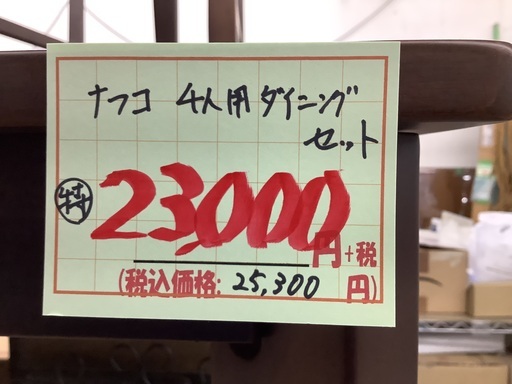 ナフコ 4人用ダイニング
セット
特 23,000円+税
(税込価格: 25,300 円)